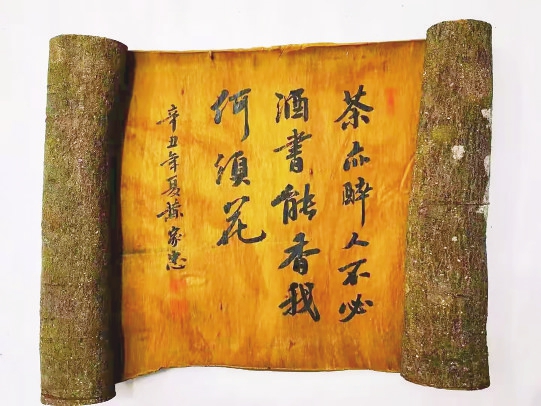 茶亦醉人不必
酒書能香我
何須花
辛丑年夏家忠